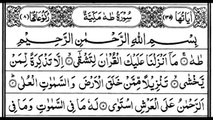 اٰيَاتُهَا ١٣٥ سُوْرَةُ طٰهٰ مَكِّيَّةٌ رُكُوْعَاتُهَا ٨
بِسْمِ اللّٰهِ الرَّحْمٰنِ الرَّحِيْمِ
طٰهٰ ۚ مَاۤ اَنْزَلْنَا عَلَيْكَ الْقُرْاٰنَ لِتَشْقٰۤى ۙ اِلَّا تَذْكِرَةً لِّمَنْ
يَّخْشٰى ۙ تَنْزِيْلًا مِّمَّنْ خَلَقَ الْاَرْضَ وَالسَّمٰوٰتِ الْعُلٰى ؕ
اَلرَّحْمٰنُ عَلَى الْعَرْشِ اسْتَوٰى لَهٗ مَا فِى السَّمٰوٰتِ وَمَا فِى